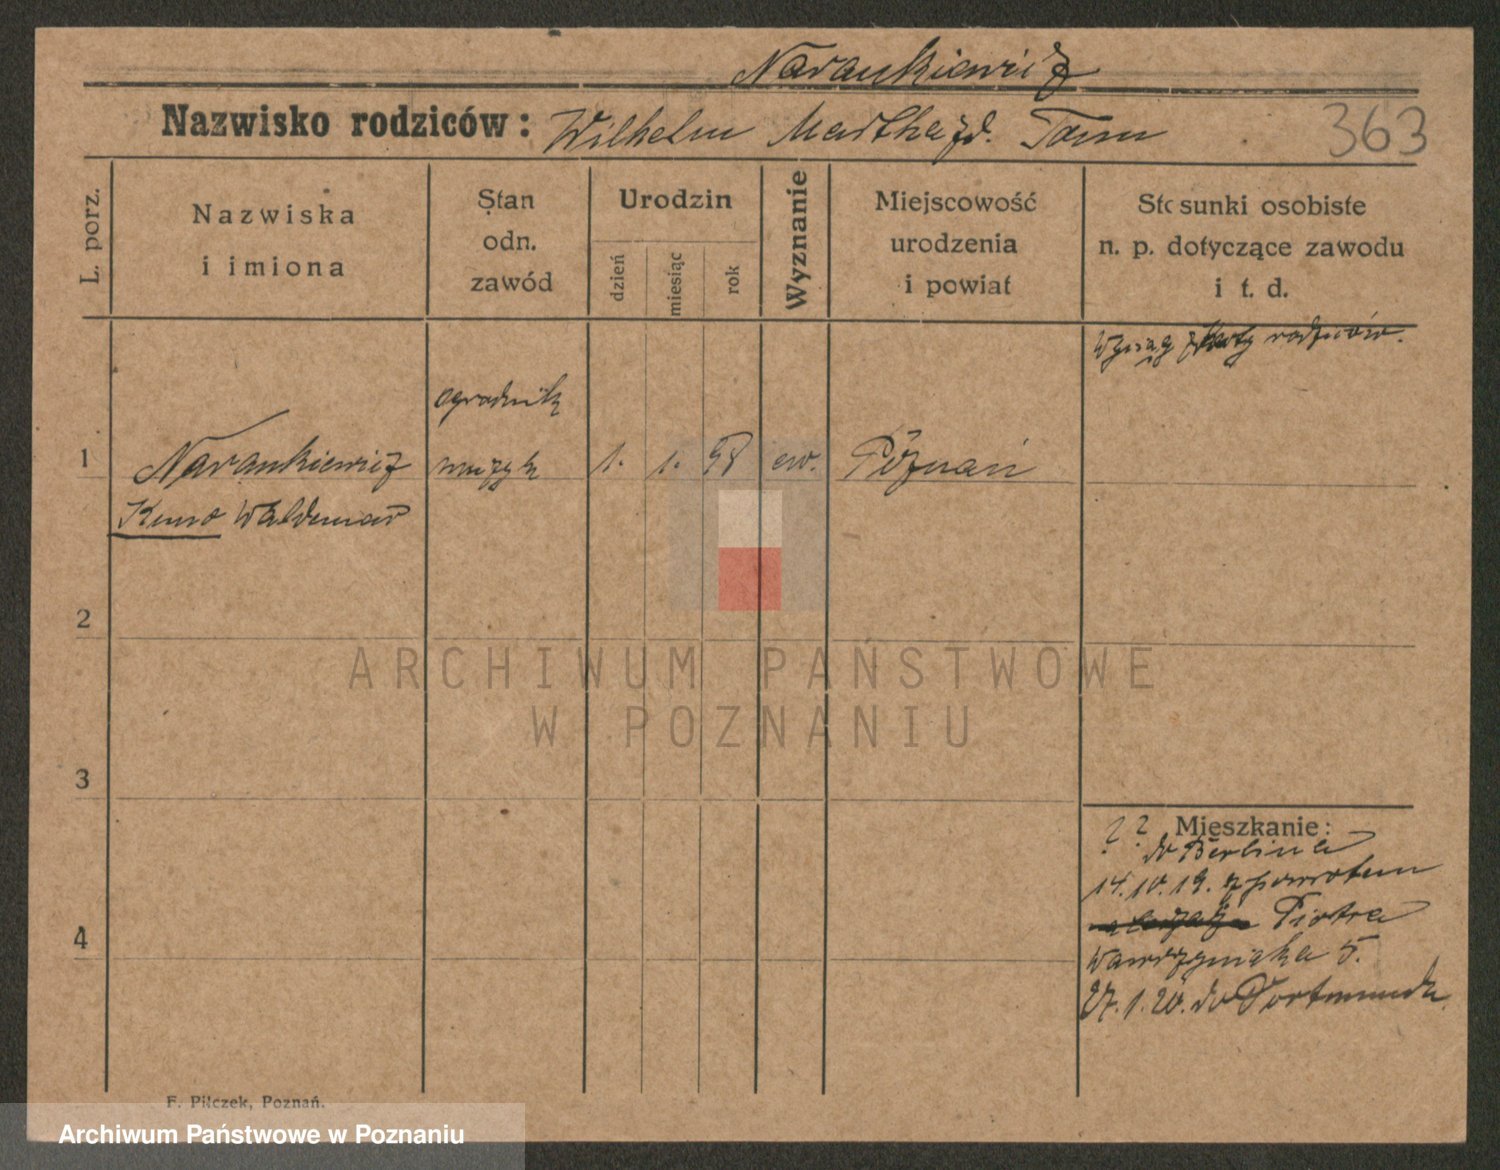 Narankiewicz
Nazwisko rodziców: Wilhelm Martha zd. Tonn
363
L. porz.
Nazwiska
i imiona
Stan
odn.
zawód
Urodzin
dzień
miesiąc
rok
Wyznanie
Miejscowość
urodzenia
i powiat
Stosunki osobiste
n. p. dotyczące zawodu
i t. d.
Wyciąg z karty rodziców.
ogrodnik
1 Narankiewicz muzyk 1. 1. 98 ew. Poznań
Kuno Waldemar
2
3
4
ARCHIWUM PAŃSTWOWE
W POZNANIU
Mieszkanie:
? ? do Berlina
14.10.19. z powrotem
Piotra
Wawrzyniaka 5.
27.1.20. do Dortmundu
F. Pilczek, Poznań.
Archiwum Państwowe w Poznaniu